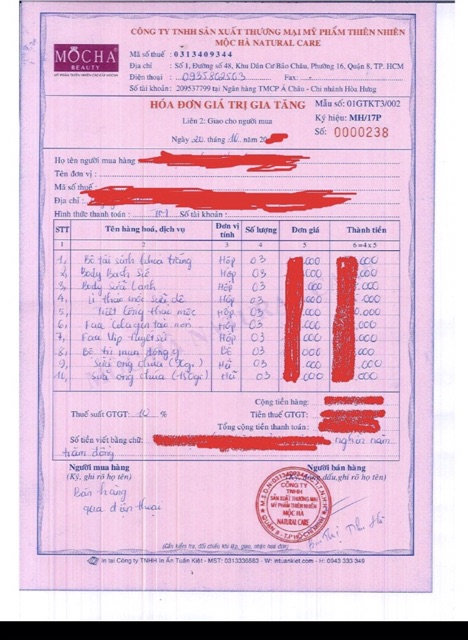 CÔNG TY TNHH SẢN XUẤT THƯƠNG MẠI MỸ PHẨM THIÊN NHIÊN
MỘC HÀ NATURAL CARE
MOCHA
BEAUTY
Mã số thuế : 0313409344
Địa chỉ : Số 1, Đường số 48, Khu Dân Cư Bảo Châu, Phường 16, Quận 8, TP. HCM
Điện thoại : 0935862503 Fax:
Số tài khoản : 209537799 tại Ngân hàng TMCP Á Châu - Chi nhánh Hòa Hưng
HÓA ĐƠN GIÁ TRỊ GIA TĂNG
Mẫu số: 01GTKT3/002
Liên 2: Giao cho người mua
Ký hiệu: MH/17P
Số: 0000238
Ngày 20 tháng 10 năm 20
Họ tên người mua hàng
Tên đơn vị :
Mã số thuế :
Địa chỉ :
Hình thức thanh toán : Số tài khoản :
STT Tên hàng hoá, dịch vụ Đơn vị tính Số lượng Đơn giá Thành tiền
1 2 3 4 5 6=4x5
1, Hộp 03 000 000
2, Body Hộp 03 000 000
3, Body Hộp 03 000 000
4, Hộp 03 000 000
5, Hộp 03 000 000
6, Hộp 03 000 000
7, Hộp 03 000 000
8, 03 000 000
9, Sữa ong chúa Hũ 03 000 000
10, Sữa ong chúa Hũ 03 000 000
Cộng tiền hàng:
Thuế suất GTGT: 10 % Tiền thuế GTGT:
Tổng cộng tiền thanh toán:
Số tiền viết bằng chữ: nghìn năm
trăm đồng
Người mua hàng Người bán hàng
(Ký, ghi rõ họ tên) (Ký, đóng dấu, ghi rõ họ tên)
Bán hàng
qua điện thoại
CÔNG TY
TNHH
SẢN XUẤT THƯƠNG MẠI
MỸ PHẨM THIÊN NHIÊN
MỘC HÀ
NATURAL CARE
(Cần kiểm tra, đối chiếu khi lập, giao, nhận hoá đơn)
In tại Công ty TNHH In Ấn Tuấn Kiệt - MST: 0313336883 - W: intuankiet.vn - H: 0943 333 949